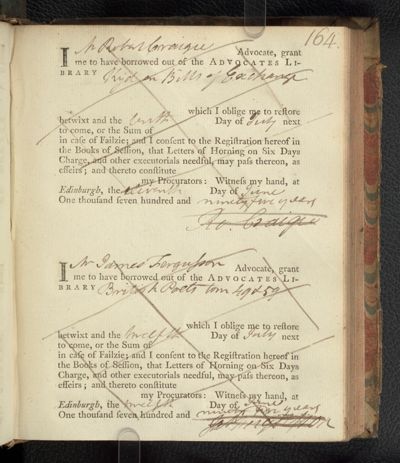 164.
I Mr Robert Craigie Advocate, grant
me to have borrowed out of the ADVOCATES LI-
BRARY Kyd on Bills of Exchange
which I oblige me to restore
betwixt and the tenth Day of July next
to come, or the Sum of
in case of Failzie; and I consent to the Registration hereof in
the Books of Session, that Letters of Horning on Six Days
Charge, and other executorials needful, may pass thereon, as
effeirs; and thereto constitute
my Procurators: Witness my hand, at
Edinburgh, the eleventh Day of June
One thousand seven hundred and ninety five years
Ro. Craigie
I Mr James Fergusson Advocate, grant
me to have borrowed out of the ADVOCATES LI-
BRARY British Poets tom 4th & 5th
which I oblige me to restore
betwixt and the twelfth Day of July next
to come, or the Sum of
in case of Failzie; and I consent to the Registration hereof in
the Books of Session, that Letters of Horning on Six Days
Charge, and other executorials needful, may pass thereon, as
effeirs; and thereto constitute
my Procurators: Witness my hand, at
Edinburgh, the twelfth Day of June
One thousand seven hundred and ninety five years